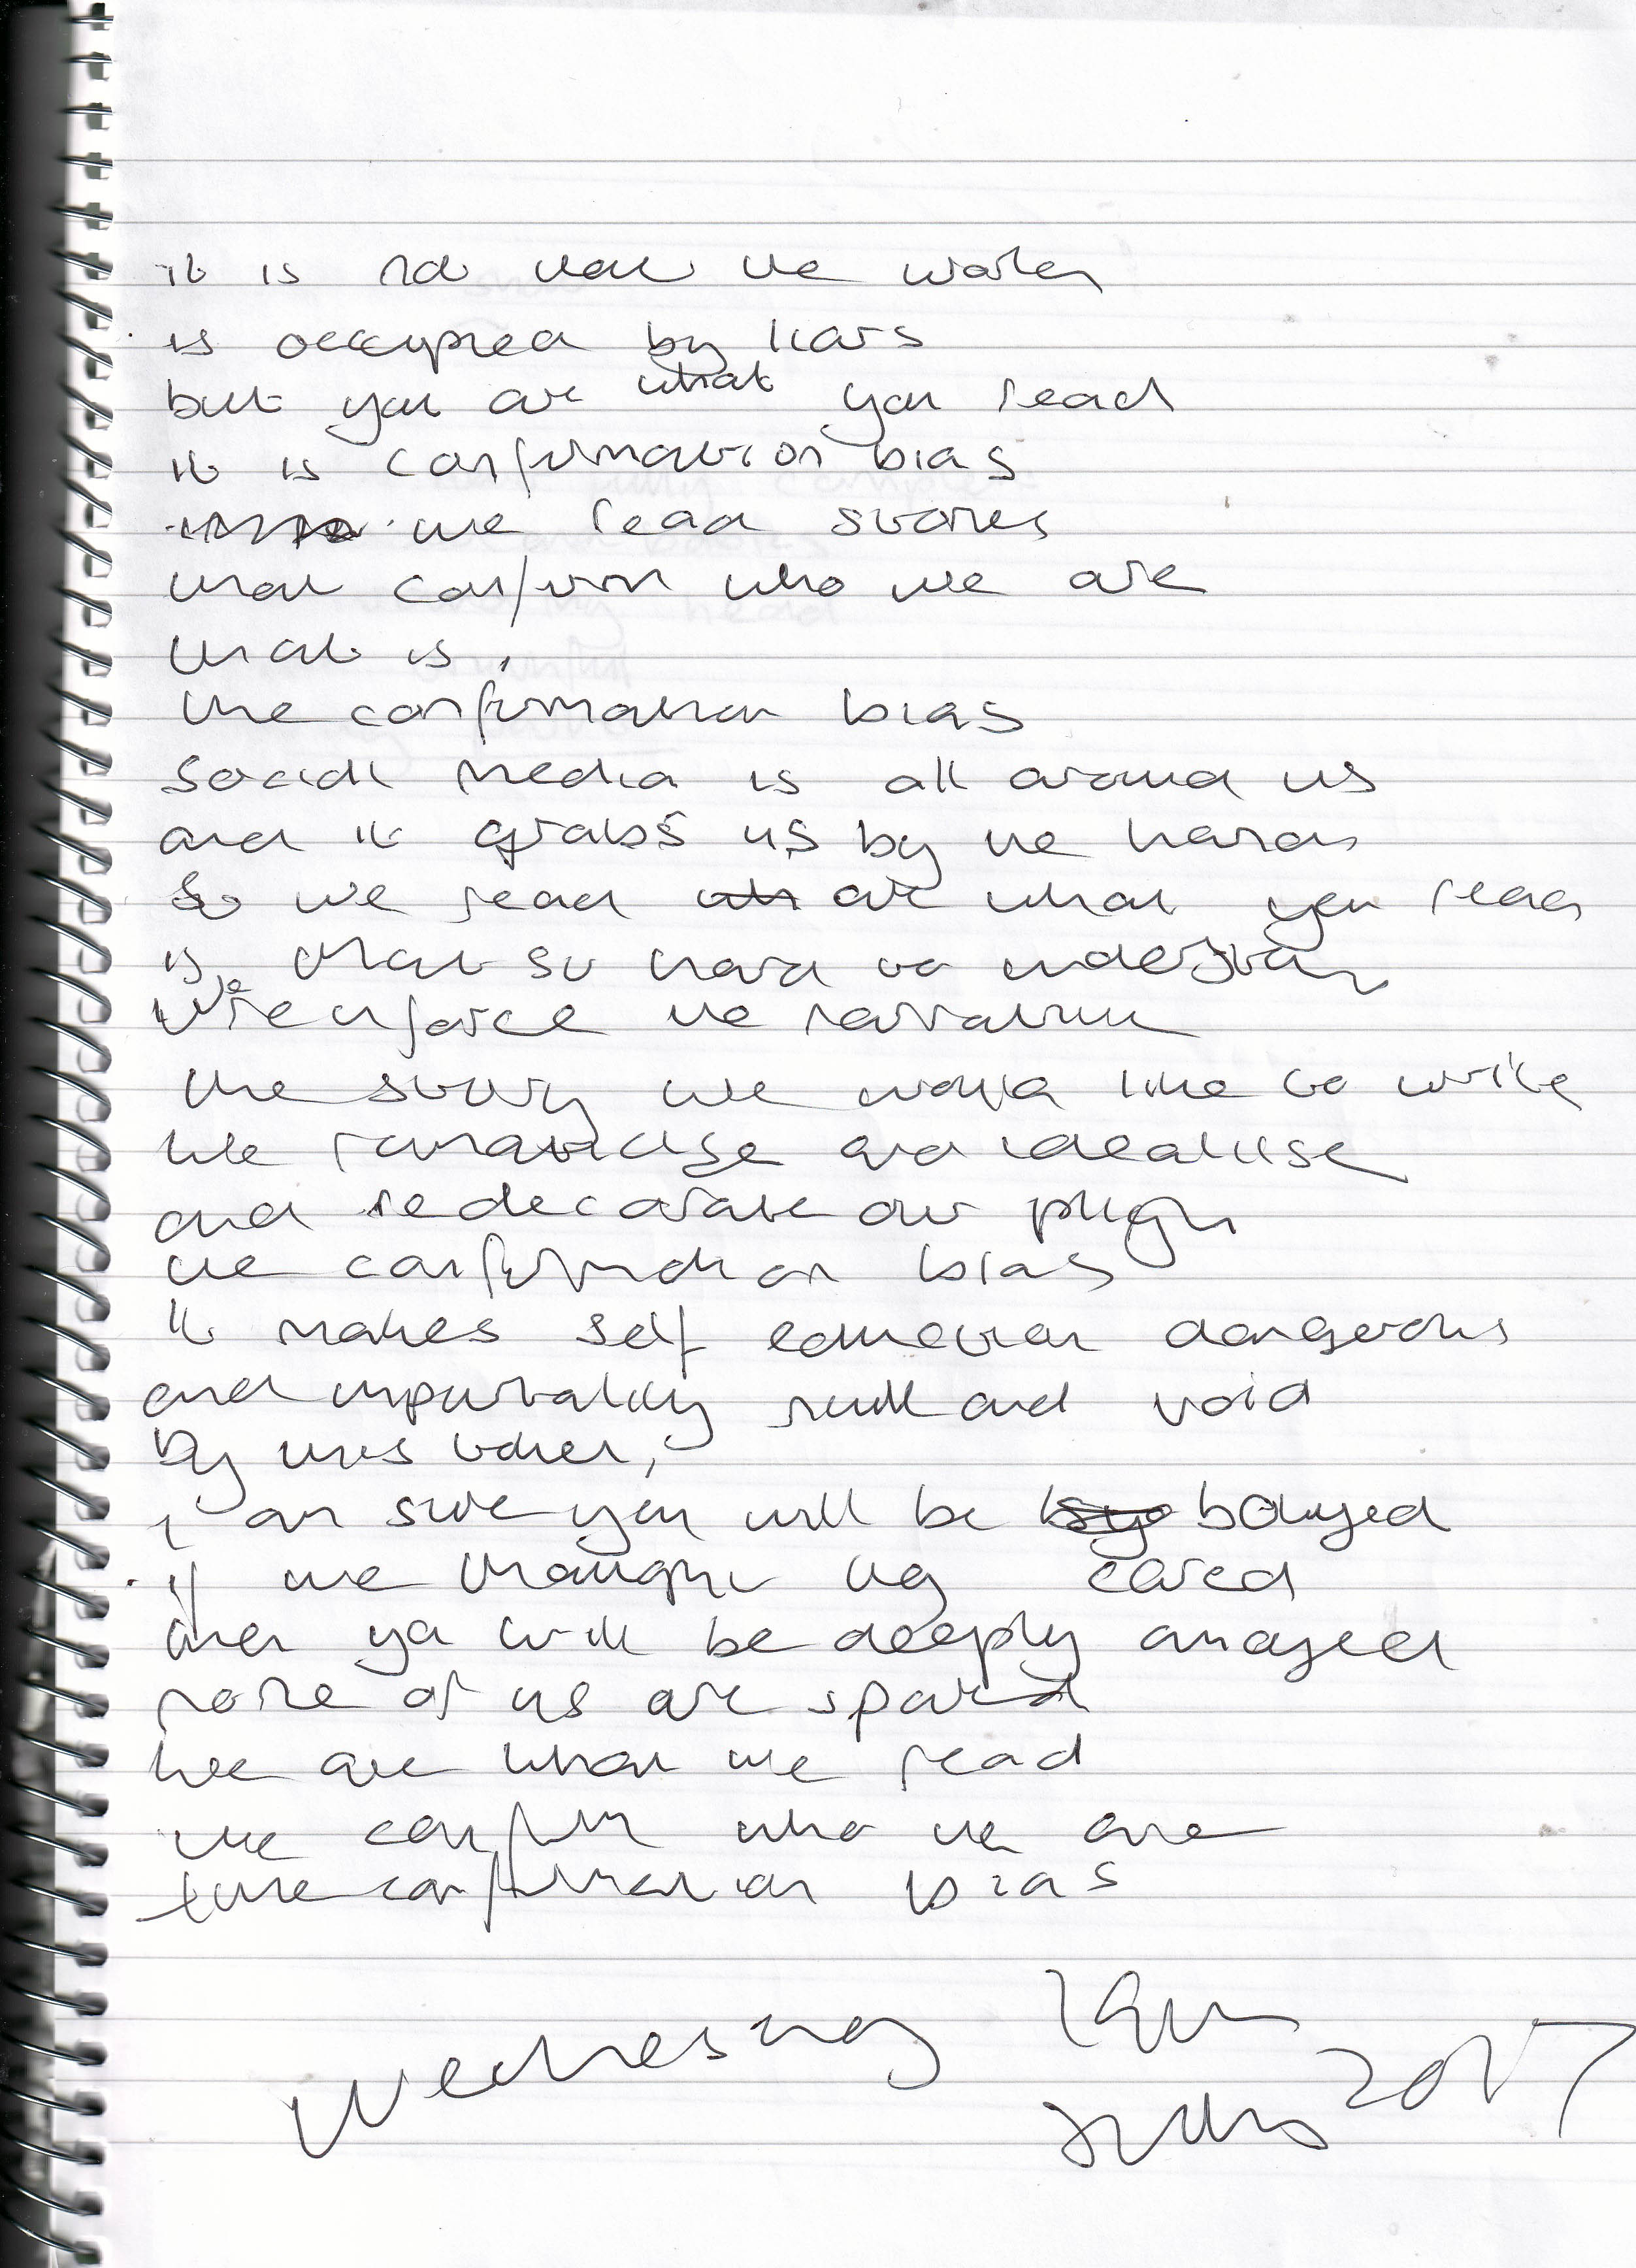 it is not that the world
is occupied by liars
but you are what you read
it is confirmation bias
we read stories
that confirm who we are
that is,
the confirmation bias
social media is all around us
and it grabs us by the hand
So we read are what you read
is that so hard to understand
We reinforce the narrative
the story we would like to write
We romanticise and idealise
and redecorate our plight
the confirmation bias
It makes self education dangerous
and impartiality null and void
By this token,
I am sure you will be
if we thought they cared
then you will be deeply
none of us are spared
We are what we read
we confirm who we are
the confirmation bias
Wednesday 19th
July 2017